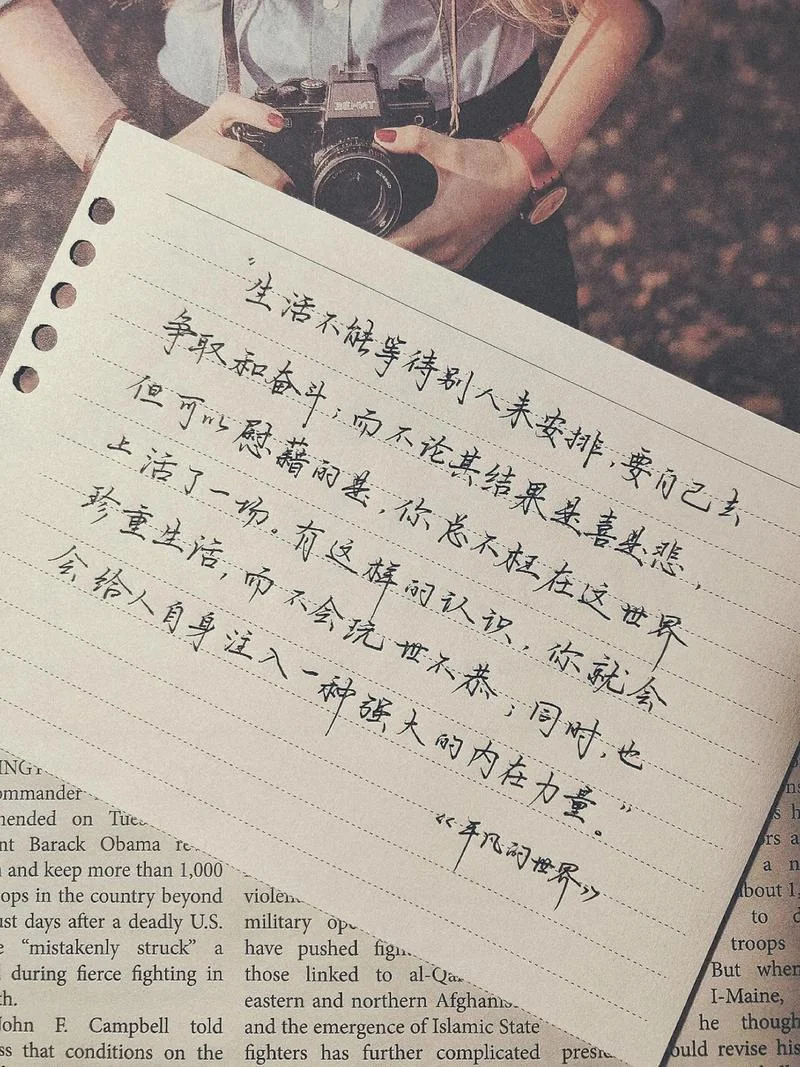 ЗЕНИТ
“生活不能等待别人来安排，要自己去
争取和奋斗；而不论其结果是喜是悲，
但可以慰藉的是，你总不枉在这世界
上活了一场。有这样的认识，你就会
珍重生活，而不会玩世不恭；同时，也
会给人自身注入一种强大的内在力量。”
《平凡的世界》
ommander
mended on
nt Barack Obama
n and keep more than 1,000
ops in the country beyond
ust days after a deadly U.S.
e “mistakenly struck” a
during fierce fighting in
th.
John F. Campbell told
ss that conditions on the
military
have pushed
those linked to
eastern and northern
and the emergence of Islamic State
fighters has further complicated
a
about
to
troops
But when
I-Maine,
he though
ould revise his